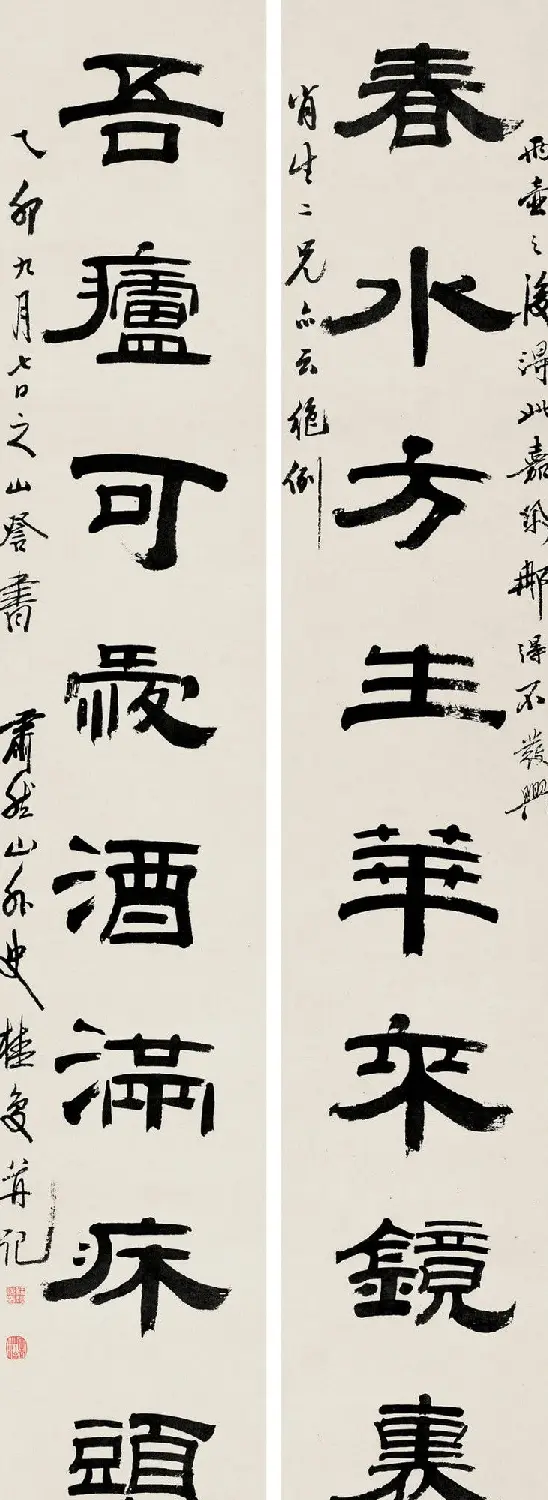 飛壺之後得此嘉聯那得不發興
春水方生華來鏡裏
肖生二兄亦云絶倒
吾廬可愛酒滿床頭
乙卯九月七日之山登書 肅然山外史桂复并記